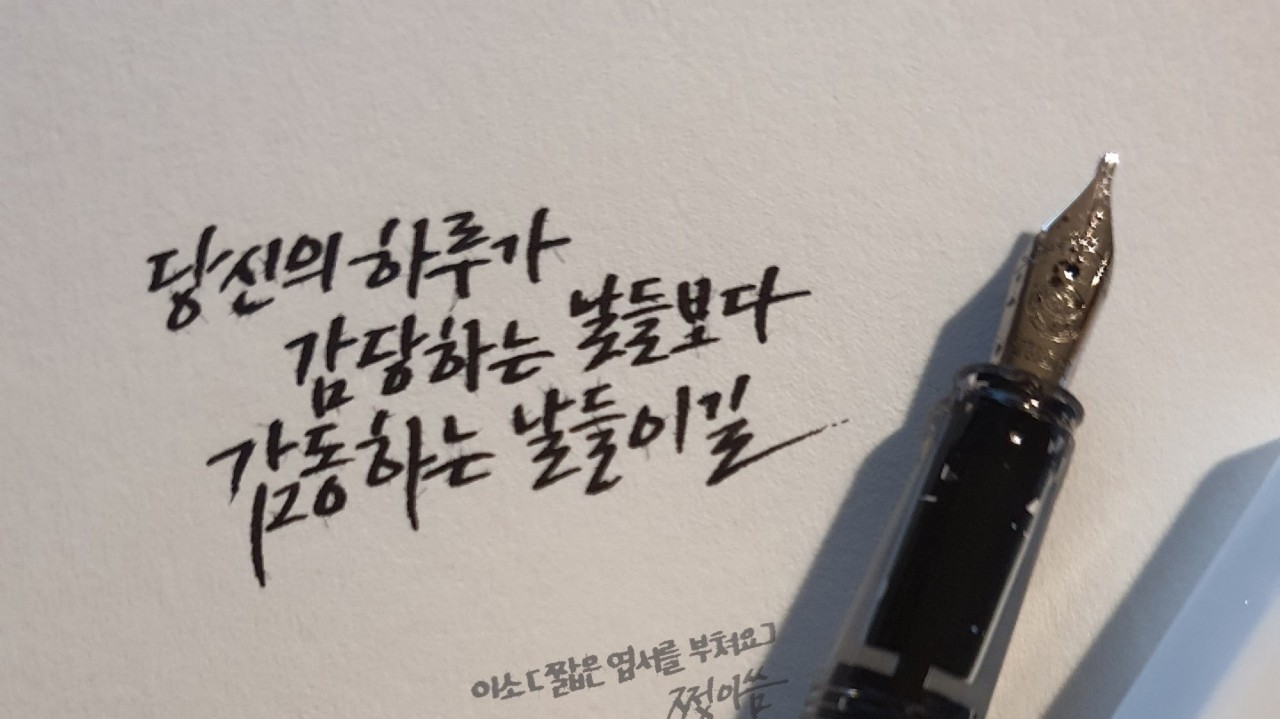 당신의 하루가
감당하는 날들보다
감동하는 날들이길
이소 [짧은 엽서를 부쳐요]
쩡이씀